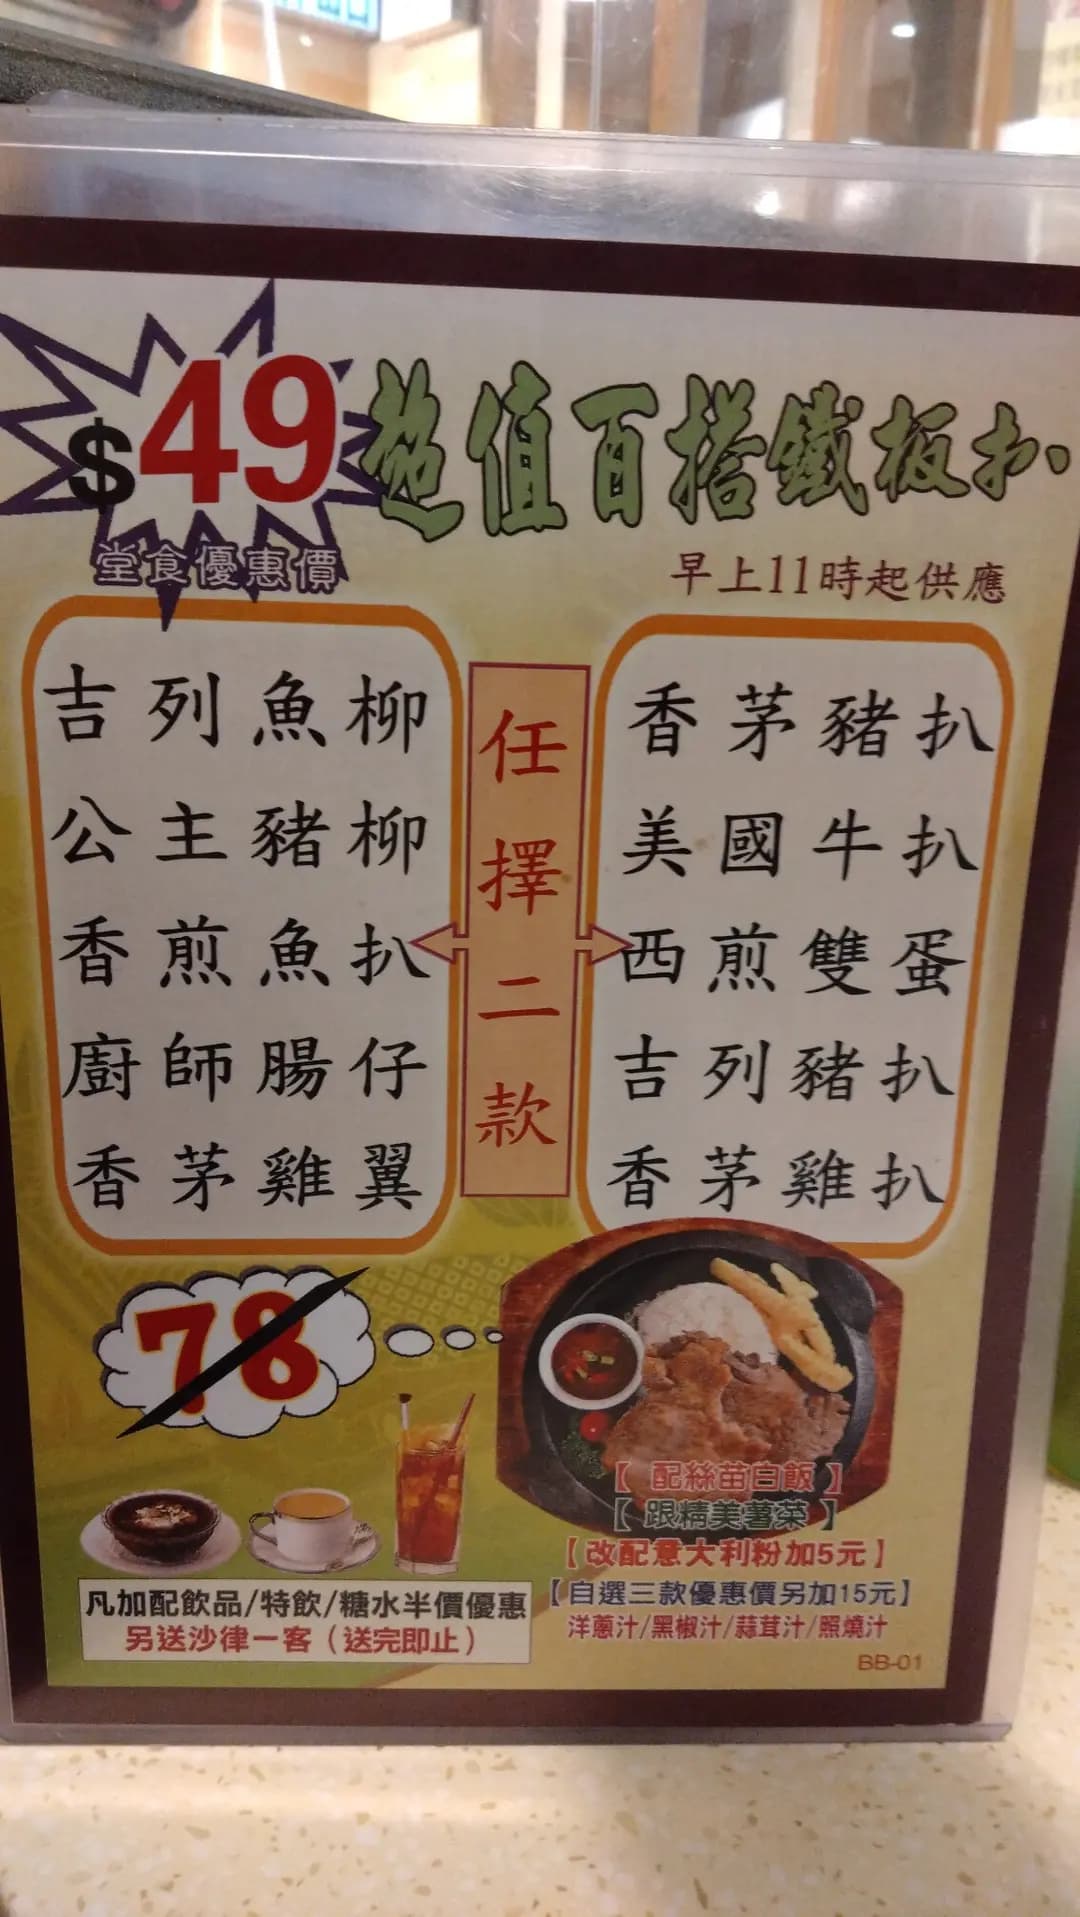 $49 超值百搭鐵板扒
堂食優惠價
早上11時起供應
吉列魚柳
公主豬柳
香煎魚扒
廚師腸仔
香茅雞翼
任擇二款
香茅豬扒
美國牛扒
西煎雙蛋
吉列豬扒
香茅雞扒
78
【配絲苗白飯】
【跟精美薯菜】
【改配意大利粉加5元】
【自選三款優惠價另加15元】
洋蔥汁/黑椒汁/蒜茸汁/照燒汁
凡加配飲品/特飲/糖水半價優惠
另送沙律一客（送完即止）
BB-01